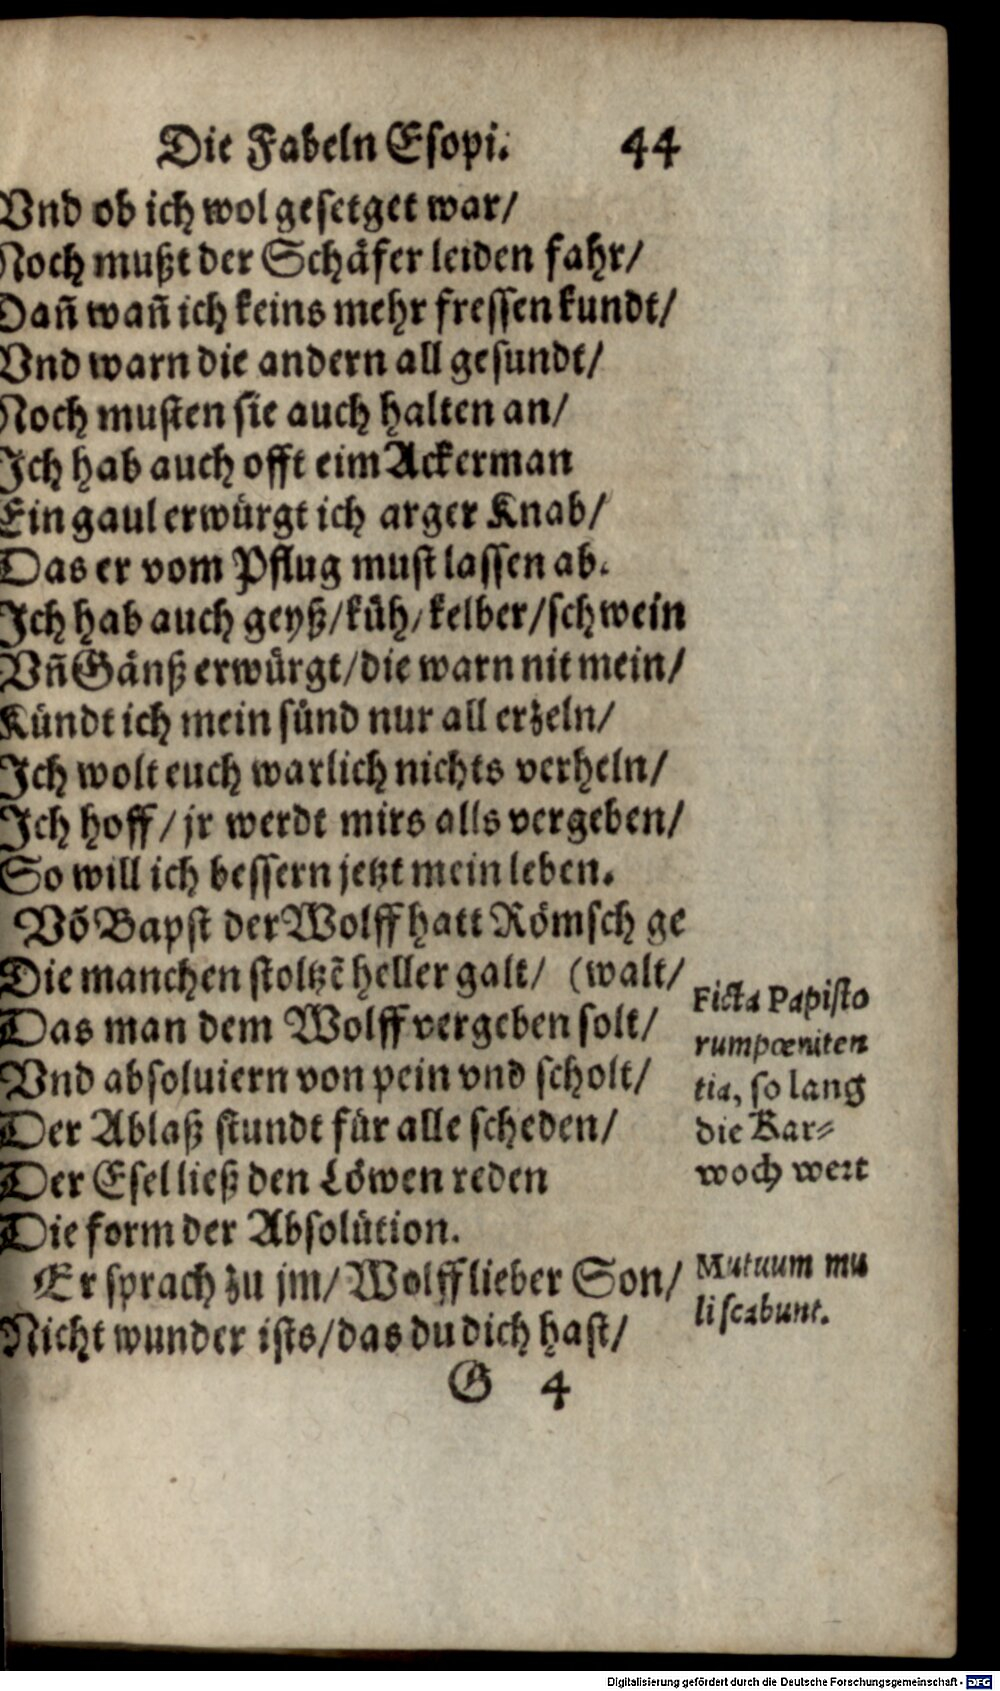 Die Fabeln Esopi. 44
Vnd ob ich wol gesetget war/
Noch mußt der Schäfer leiden fahr/
Dañ wañ ich keins mehr fressen kundt/
Vnd warn die andern all gesundt/
Noch musten sie auch halten an/
Ich hab auch offt eim Ackerman
Ein gaul erwürgt ich arger Knab/
Das er vom Pflug must lassen ab.
Ich hab auch geyß/küh/kelber/schwein
Vñ Gänß erwürgt/die warn nit mein/
Kündt ich mein sünd nur all erzeln/
Ich wolt euch warlich nichts verheln/
Ich hoff/jr werdt mirs alls vergeben/
So will ich bessern jetzt mein leben.
Võ Bapst der Wolff hatt Römsch ge
Die manchen stoltzẽ heller galt/ (walt/
Das man dem Wolff vergeben solt/
Vnd absoluiern von pein vnd scholt/
Der Ablaß stundt für alle scheden/
Der Esel ließ den Löwen reden
Die form der Absolütion.
Er sprach zu jm/Wolff lieber Son/
Nicht wunder ists/das du dich hast/
Ficta Papisto
rum pœniten
tia, so lang
die Kar⸗
woch wert
Mutuum mu
li scabunt.
G 4
Digitalisierung gefördert durch die Deutsche Forschungsgemeinschaft - DFG